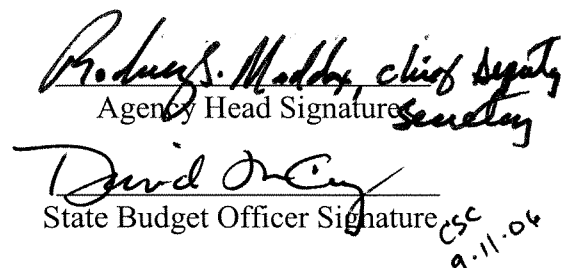 Rodney S. Maddox, chief Deputy
Agency Head Signature Secretary
David McCoy
State Budget Officer Signature
CSC
9.11.06